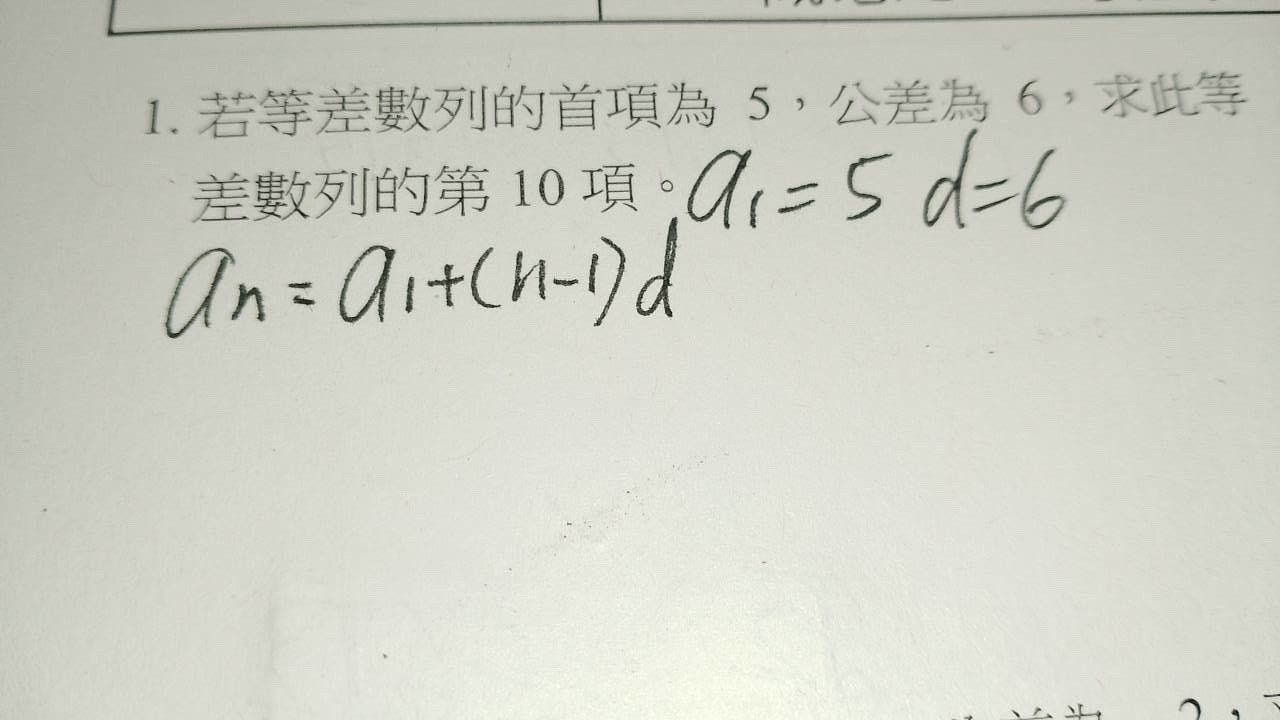 1. 若等差數列的首項為 5，公差為 6，求此等
差數列的第 10 項。a₁=5 d=6
aₙ=a₁+(n-1)d